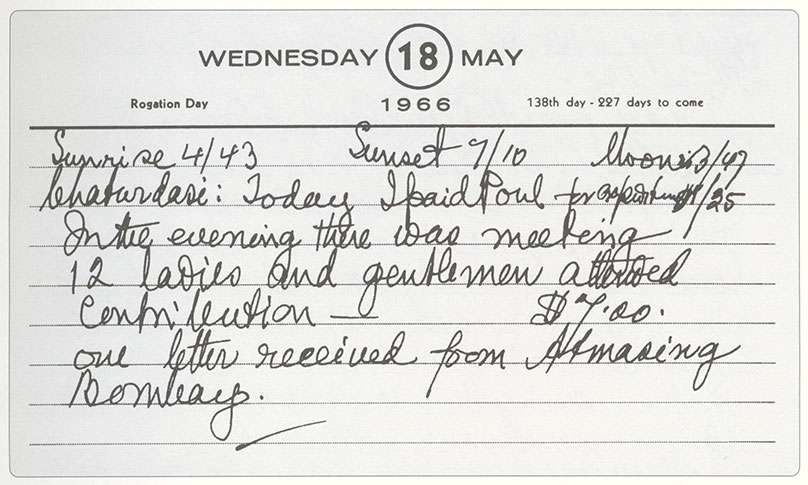 WEDNESDAY 18 MAY
Rogation Day 1966 138th day - 227 days to come
Sunrise 4/43 Sunset 7/10 Moonris 3/47
Chaturdasi: Today I paid Poul for /25
In the evening there was meeting
12 ladies and gentlemen attended
Contribution — $7.00.
one letter received from Atmasing
Bombay.